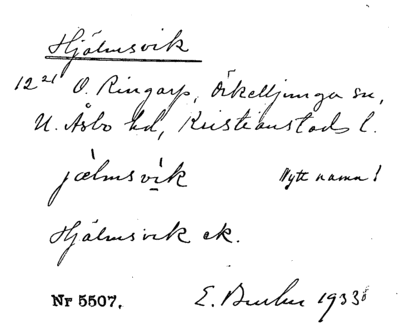 Hjälmsvik
12²¹ O. Ringarp, Örkelljunga sn,
N. Åsbo hd, Kristianstads l.
jælmsvik Nytt namn!
Hjälmsvik ek.
Nr 5507. E. 1933